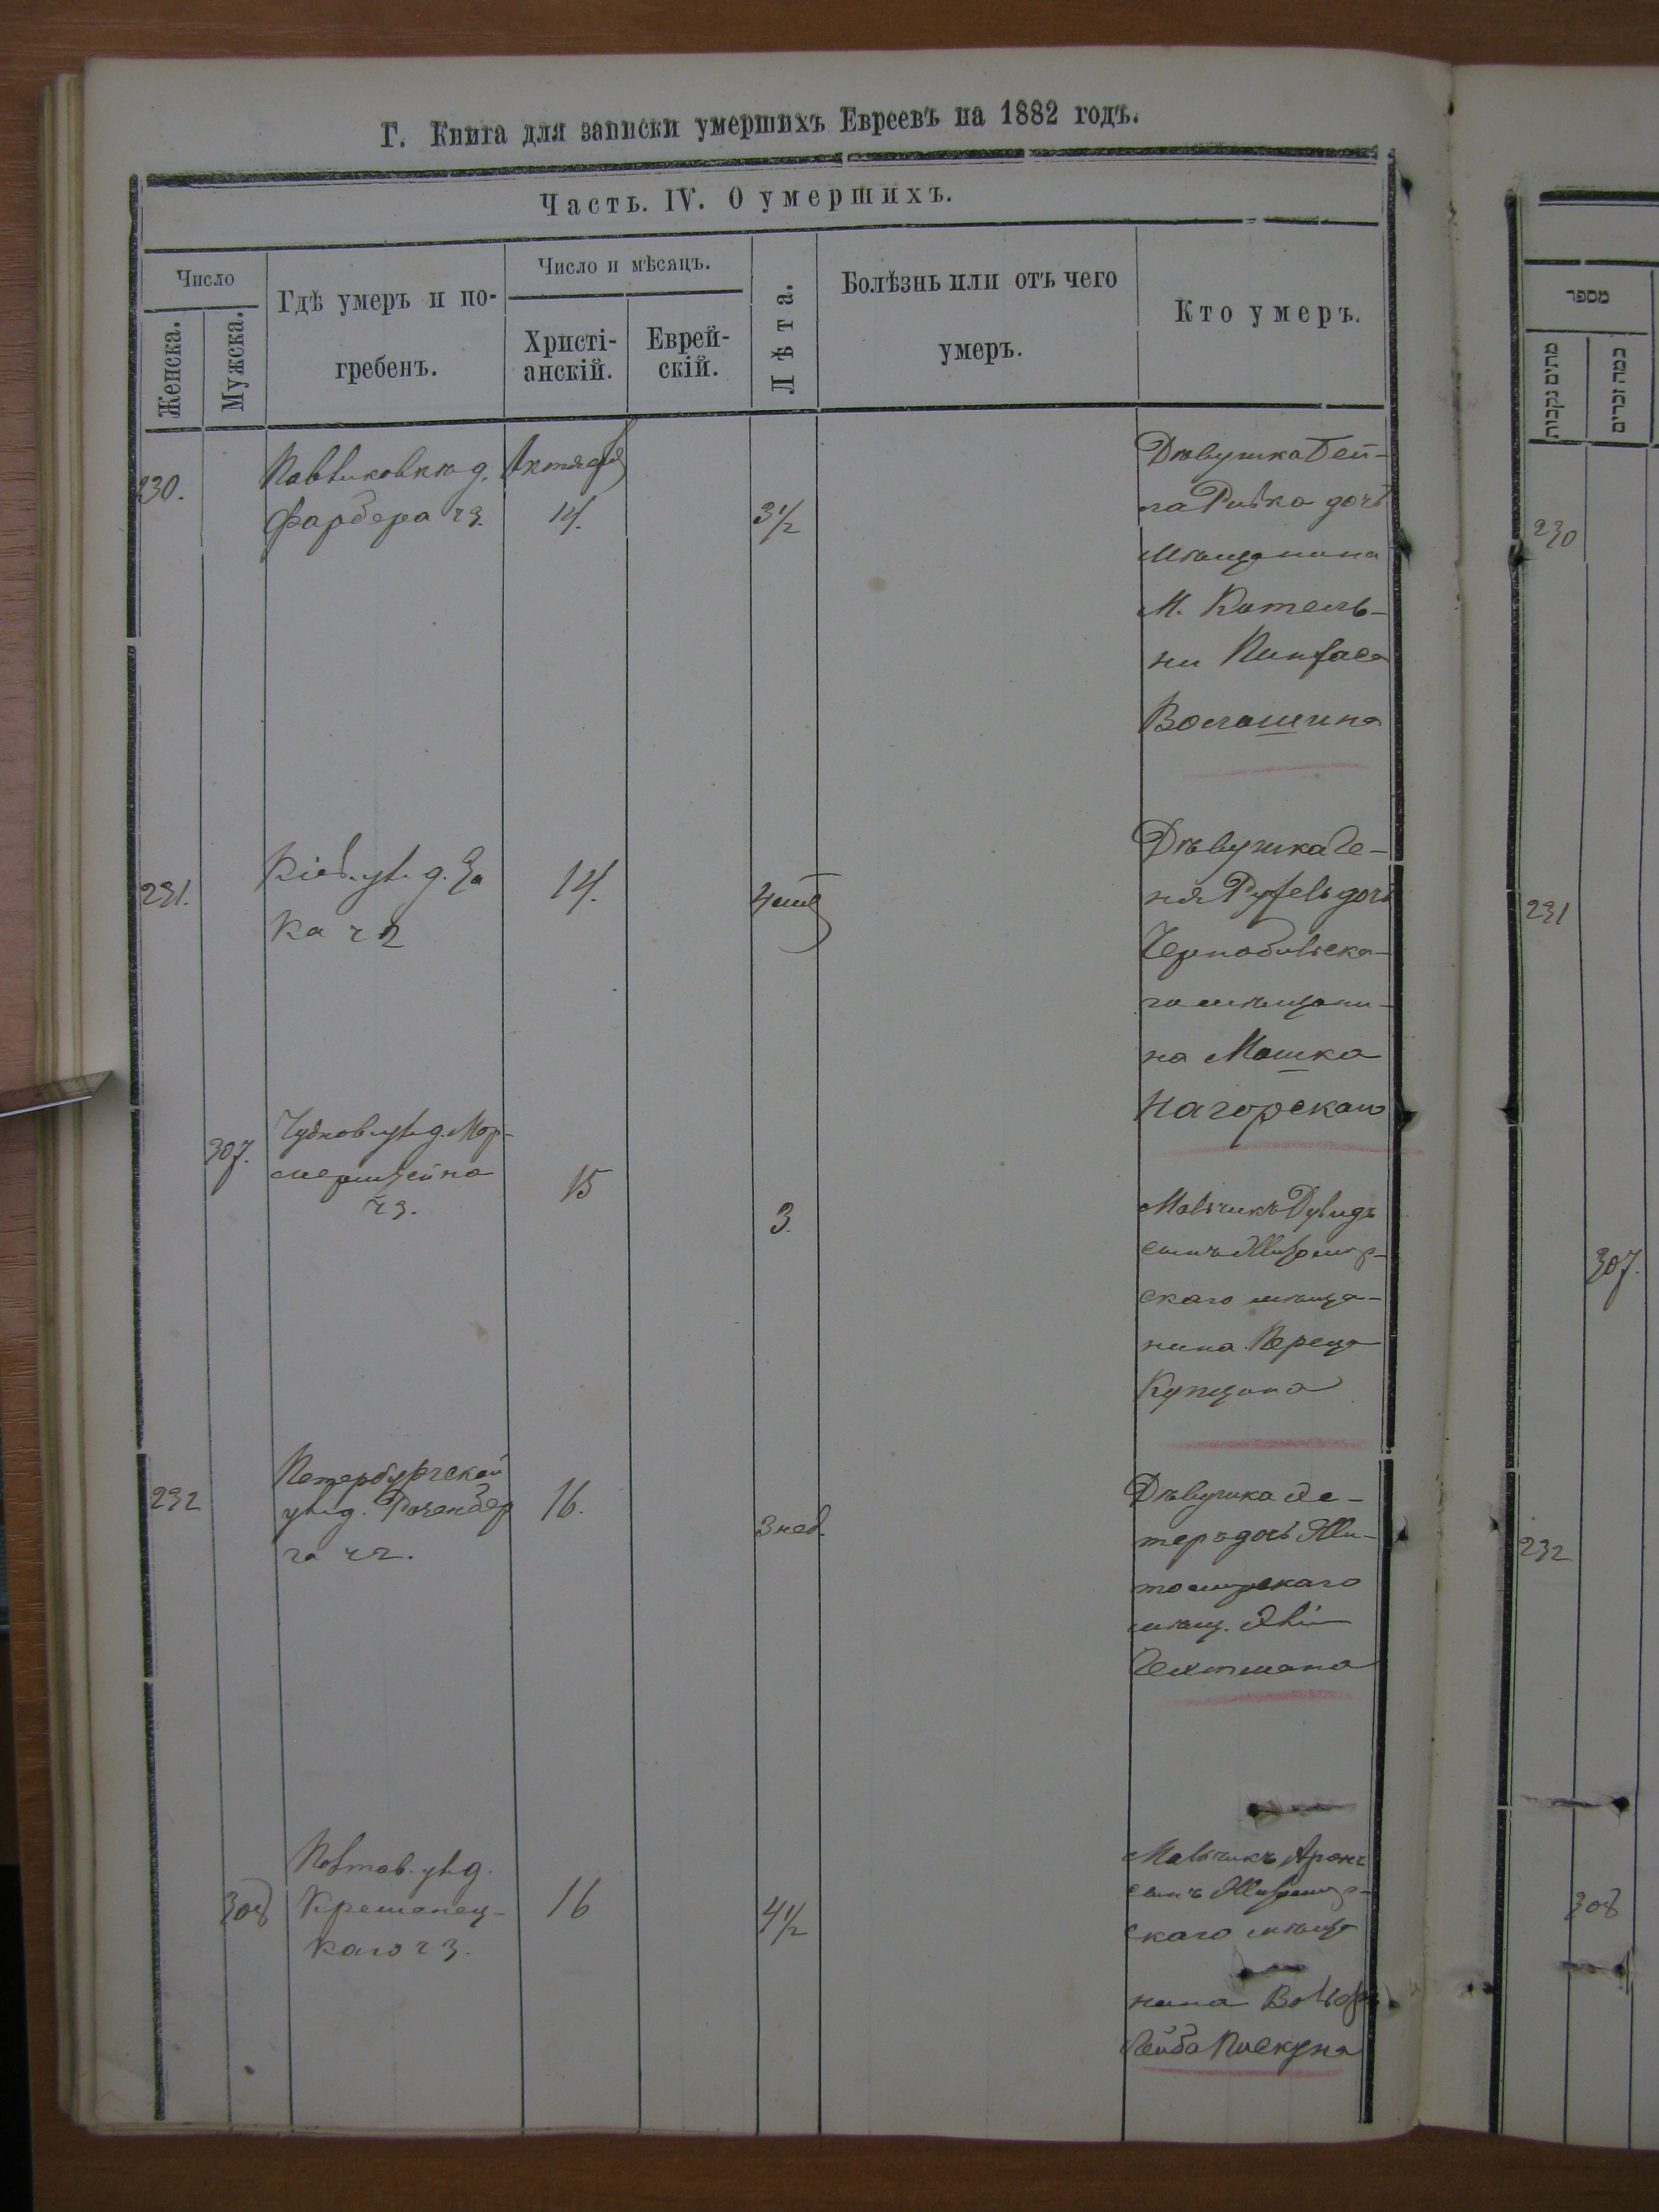 Г. Книга для записки умершихъ Евреевъ на 1882 годъ.
Часть. IV. О умершихъ.
Число
Женска.
Мужска.
Гдѣ умеръ и по-
гребенъ.
Число и мѣсяцъ.
Христі-
анскій.
Еврей-
скій.
Лѣта.
Болѣзнь или отъ чего
умеръ.
Кто умеръ.
230.
д.
Фарбера ч 3.
Октября
14.
3 1/2
Дѣвушка Бей-
ла Ривка дочь
мѣщанина
М. Котель-
ни Пинхаса
Волошина
231.
Кіев. ул. д. За
ка ч 2
14.
Дѣвушка Ге-
ня Рухель дочь
Чернобильска-
го мѣщани-
на Мошка
Нагорскаго
307.
Чудновул. д. Мор-
ч 3.
15
3.
Мальчикъ Дувидъ
сынъ Житомир-
скаго мѣща-
нина Переца
Купцина
232
Петербургской
ул. д. Розенбер
га ч 2.
16.
3 нед.
Дѣвушка Эс-
теръ дочь Жи-
томирскаго
мѣщ.
Гехтмана
308
ул. д.
Кременец-
каго ч 3.
16
4 1/2
Мальчикъ Аронъ
сынъ Житомир-
скаго мѣща
нина Вольфъ
Лейба Пискуна
מספר
מתים נקבות
כמה זכרים
230
231
307.
232
308